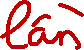 lần